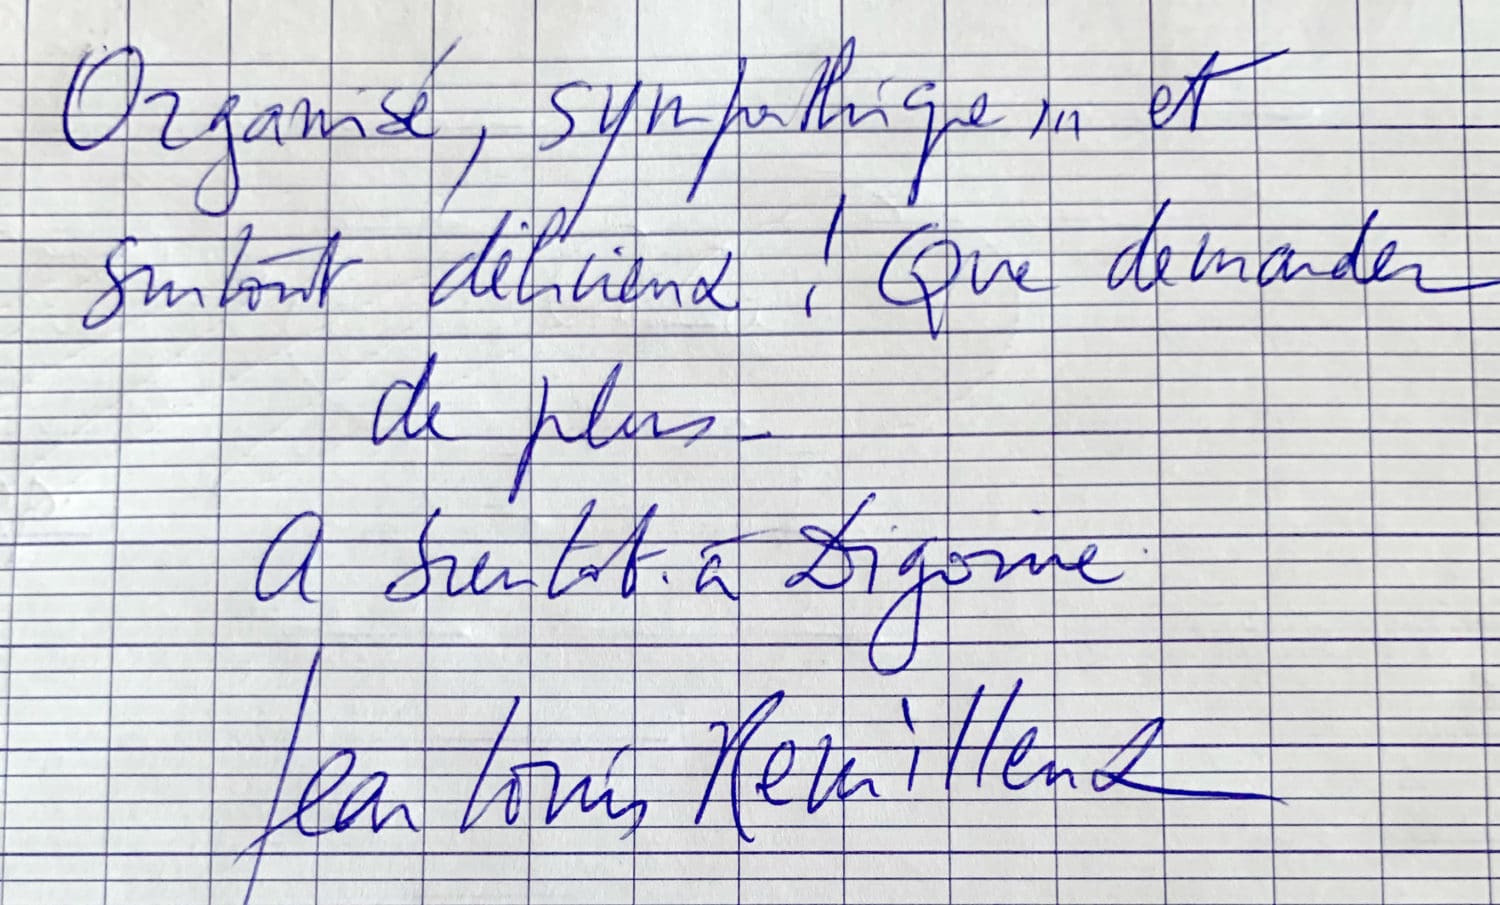 Organisé, sympathique, et
surtout délicieux ! Que demander
de plus -
A bientôt à Digoine.
Jean Louis